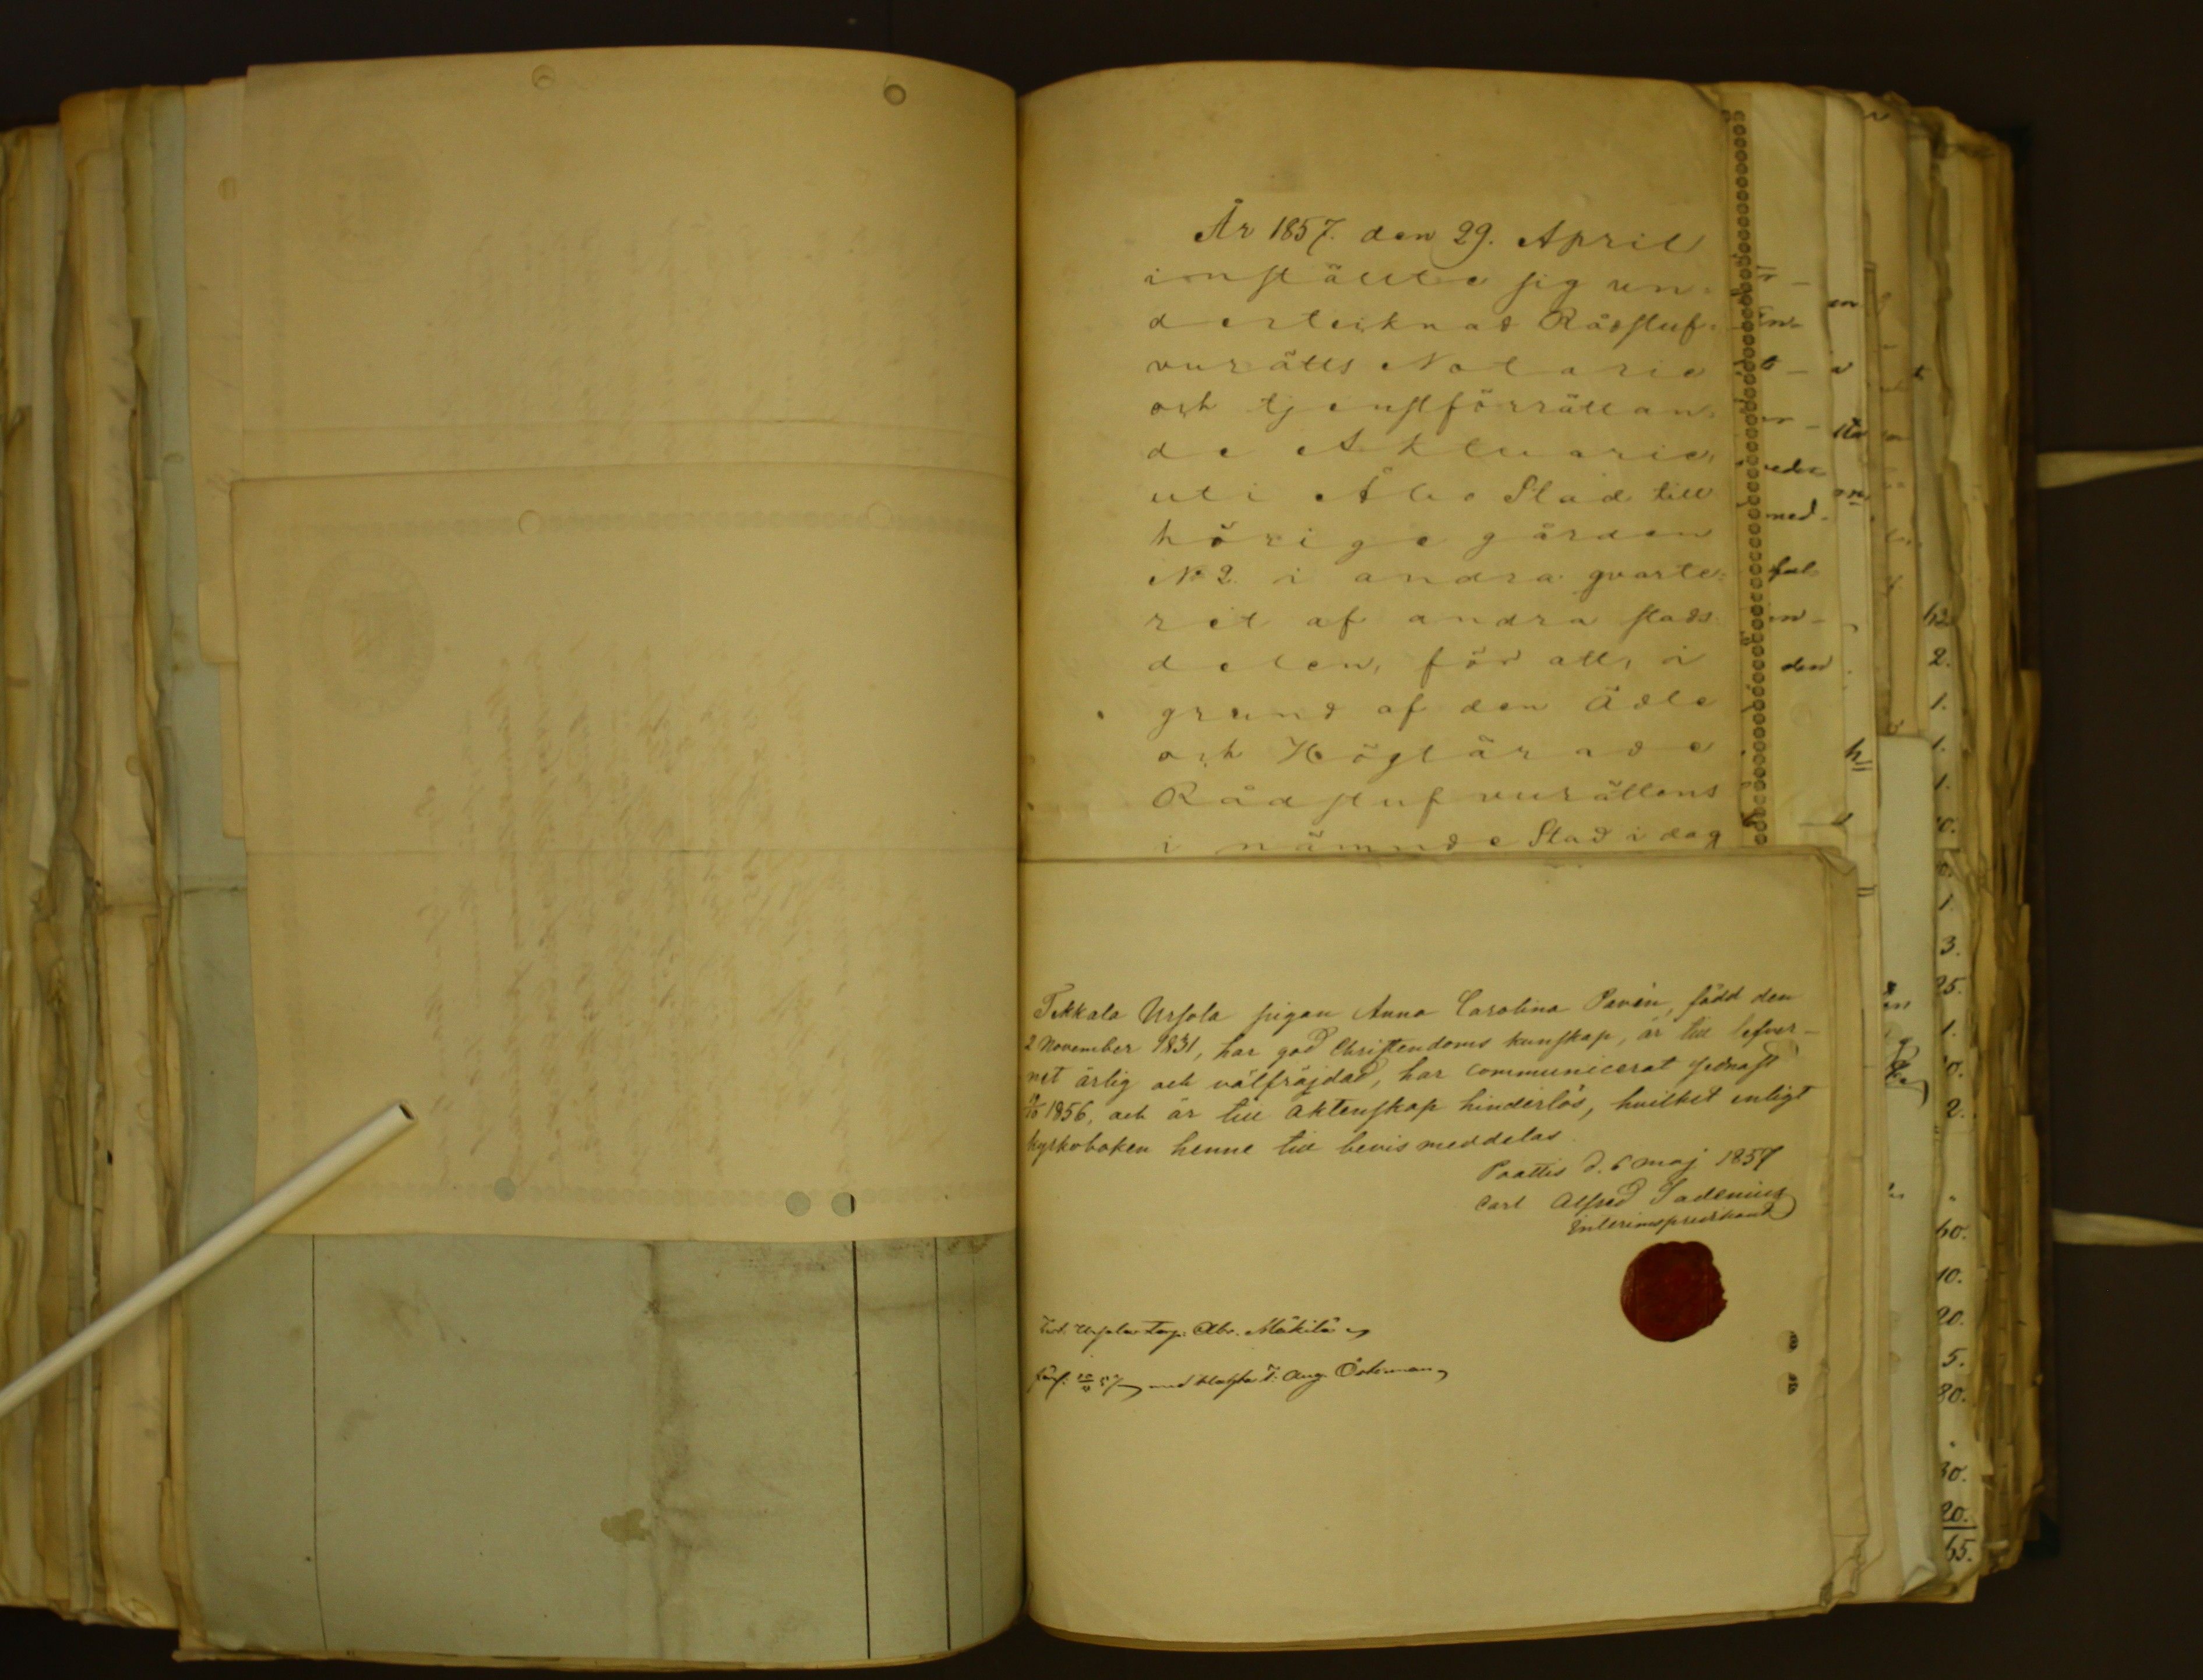 År 1857. den 29. April
instälte sig un-
dertecknad Rådstuf-
vurätts Notarie
och tjenstförrättan-
de Aktuarie,
uti Åbo Stad till
hörige gården
No 2. i andra qvarte-
ret af andra stads
delen, för att, i
grund af den Ädle
och Höglärade
Rådstufvurättens
i nämnde Stad i dag
Tekkala Ursola pigan Anna Carolina Pavén, född den
2 November 1831, har god Christendoms kunskap, är till lefver-
net ärlig och välfräjdad, har communicerat sednast
1856, och är till äktenskap hinderlös, hvilket enligt
kyrkoboken henne till bevis meddelas.
Paattis d. 6 maj 1857
Carl Alfred Sadenius
Interimspredikant
Ursola Abr. Mäkilä
57 med Aug. Österman
en
med
den
h
2.
1.
1.
1.
1.
3.
25.
1.
2.
10.
20.
5.
80.
20.